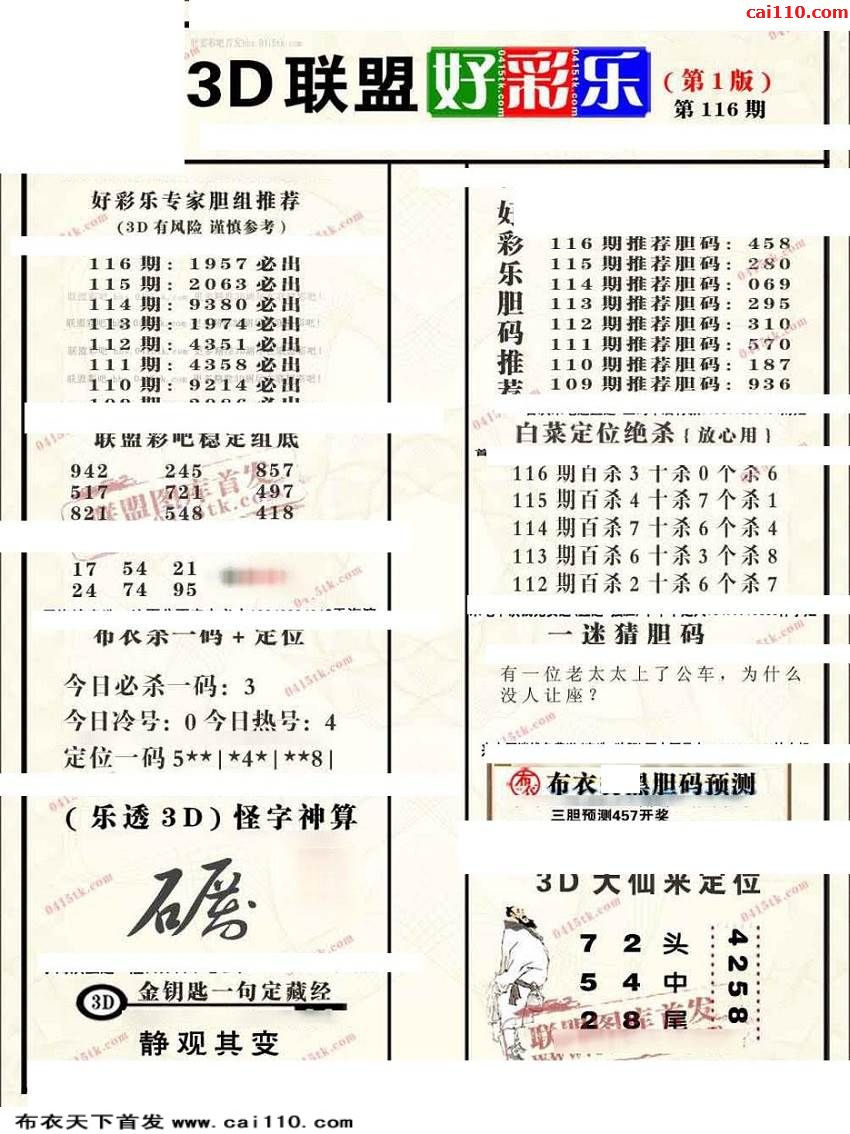 cai110.com
3D联盟好彩乐
(第1版)
第116期
好彩乐专家胆组推荐
(3D有风险 谨慎参考)
116期: 1957必出
115期: 2063必出
114期: 9380必出
113期: 1974必出
112期: 4351必出
111期: 4358必出
110期: 9214必出
好彩乐胆码推荐
116期推荐胆码: 458
115期推荐胆码: 280
114期推荐胆码: 069
113期推荐胆码: 295
112期推荐胆码: 310
111期推荐胆码: 570
110期推荐胆码: 187
109期推荐胆码: 936
联盟彩吧稳定组底
942 245 857
517 721 497
821 548 418
17 54 21
24 74 95
白菜定位绝杀{放心用}
116期百杀3十杀0个杀6
115期百杀4十杀7个杀1
114期百杀7十杀6个杀4
113期百杀6十杀3个杀8
112期百杀2十杀6个杀7
布衣杀一码+定位
今日必杀一码: 3
今日冷号: 0 今日热号: 4
定位一码 5**|*4*|**8|
一迷猜胆码
有一位老太太上了公车，为什么
没人让座？
(乐透3D)怪字神算
布衣 黑胆码预测
三胆预测457开奖
3D大仙来定位
7 2 头
5 4 中
2 8 尾
4258
3D 金钥匙一句定藏经
静观其变
联盟图库首发
0415tk.com
布衣天下首发 www.cai110.com